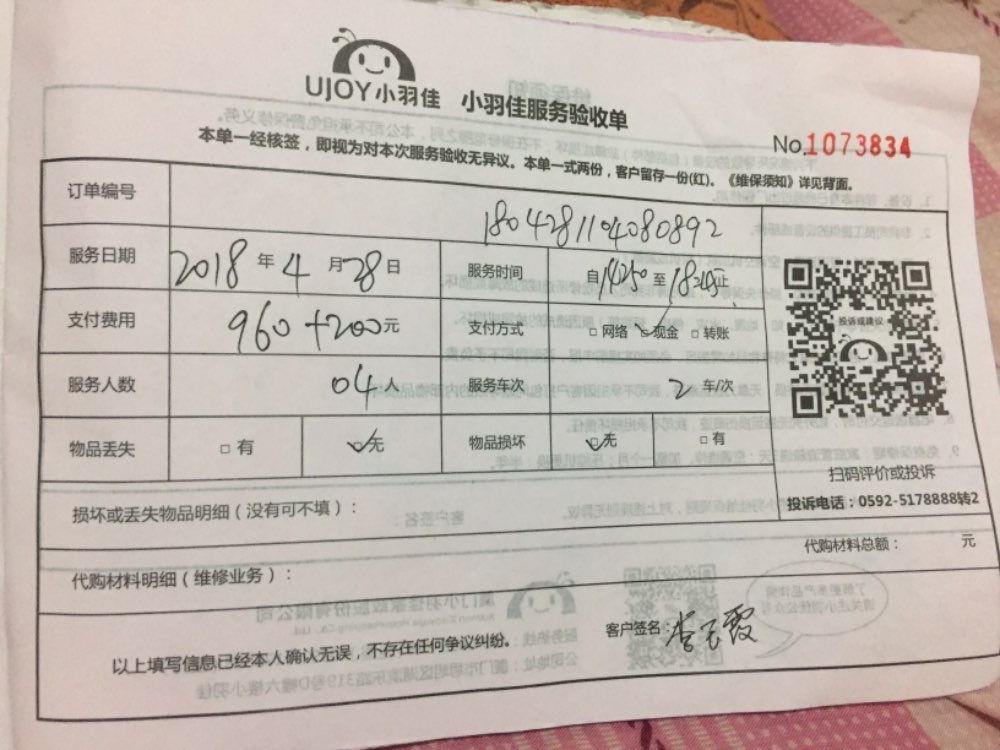 UJOY小羽佳 小羽佳服务验收单
No.1073834
本单一经核签，即视为对本次服务验收无异议。本单一式两份，客户留存一份(红)。《维保须知》详见背面。
订单编号 180428110408089​2
服务日期 2018年4月28日 服务时间 自14:50至18:20止
支付费用 960+200元 支付方式 □网络 ☑现金 □转账
服务人数 04人 服务车次 2车/次
物品丢失 □有 ☑无 物品损坏 ☑无 □有
投诉或建议
扫码评价或投诉
投诉电话：0592-5178888转2
损坏或丢失物品明细（没有可不填）：
代购材料总额： 元
代购材料明细（维修业务）：
客户签名
以上填写信息已经本人确认无误，不存在任何争议纠纷。